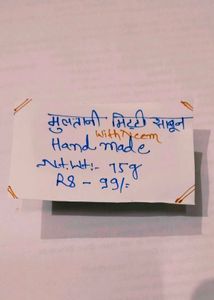 मुलतानी मिट्टी साबुन
With Neem
Hand made
Nt. Wt:- 75g
RS - 99/-